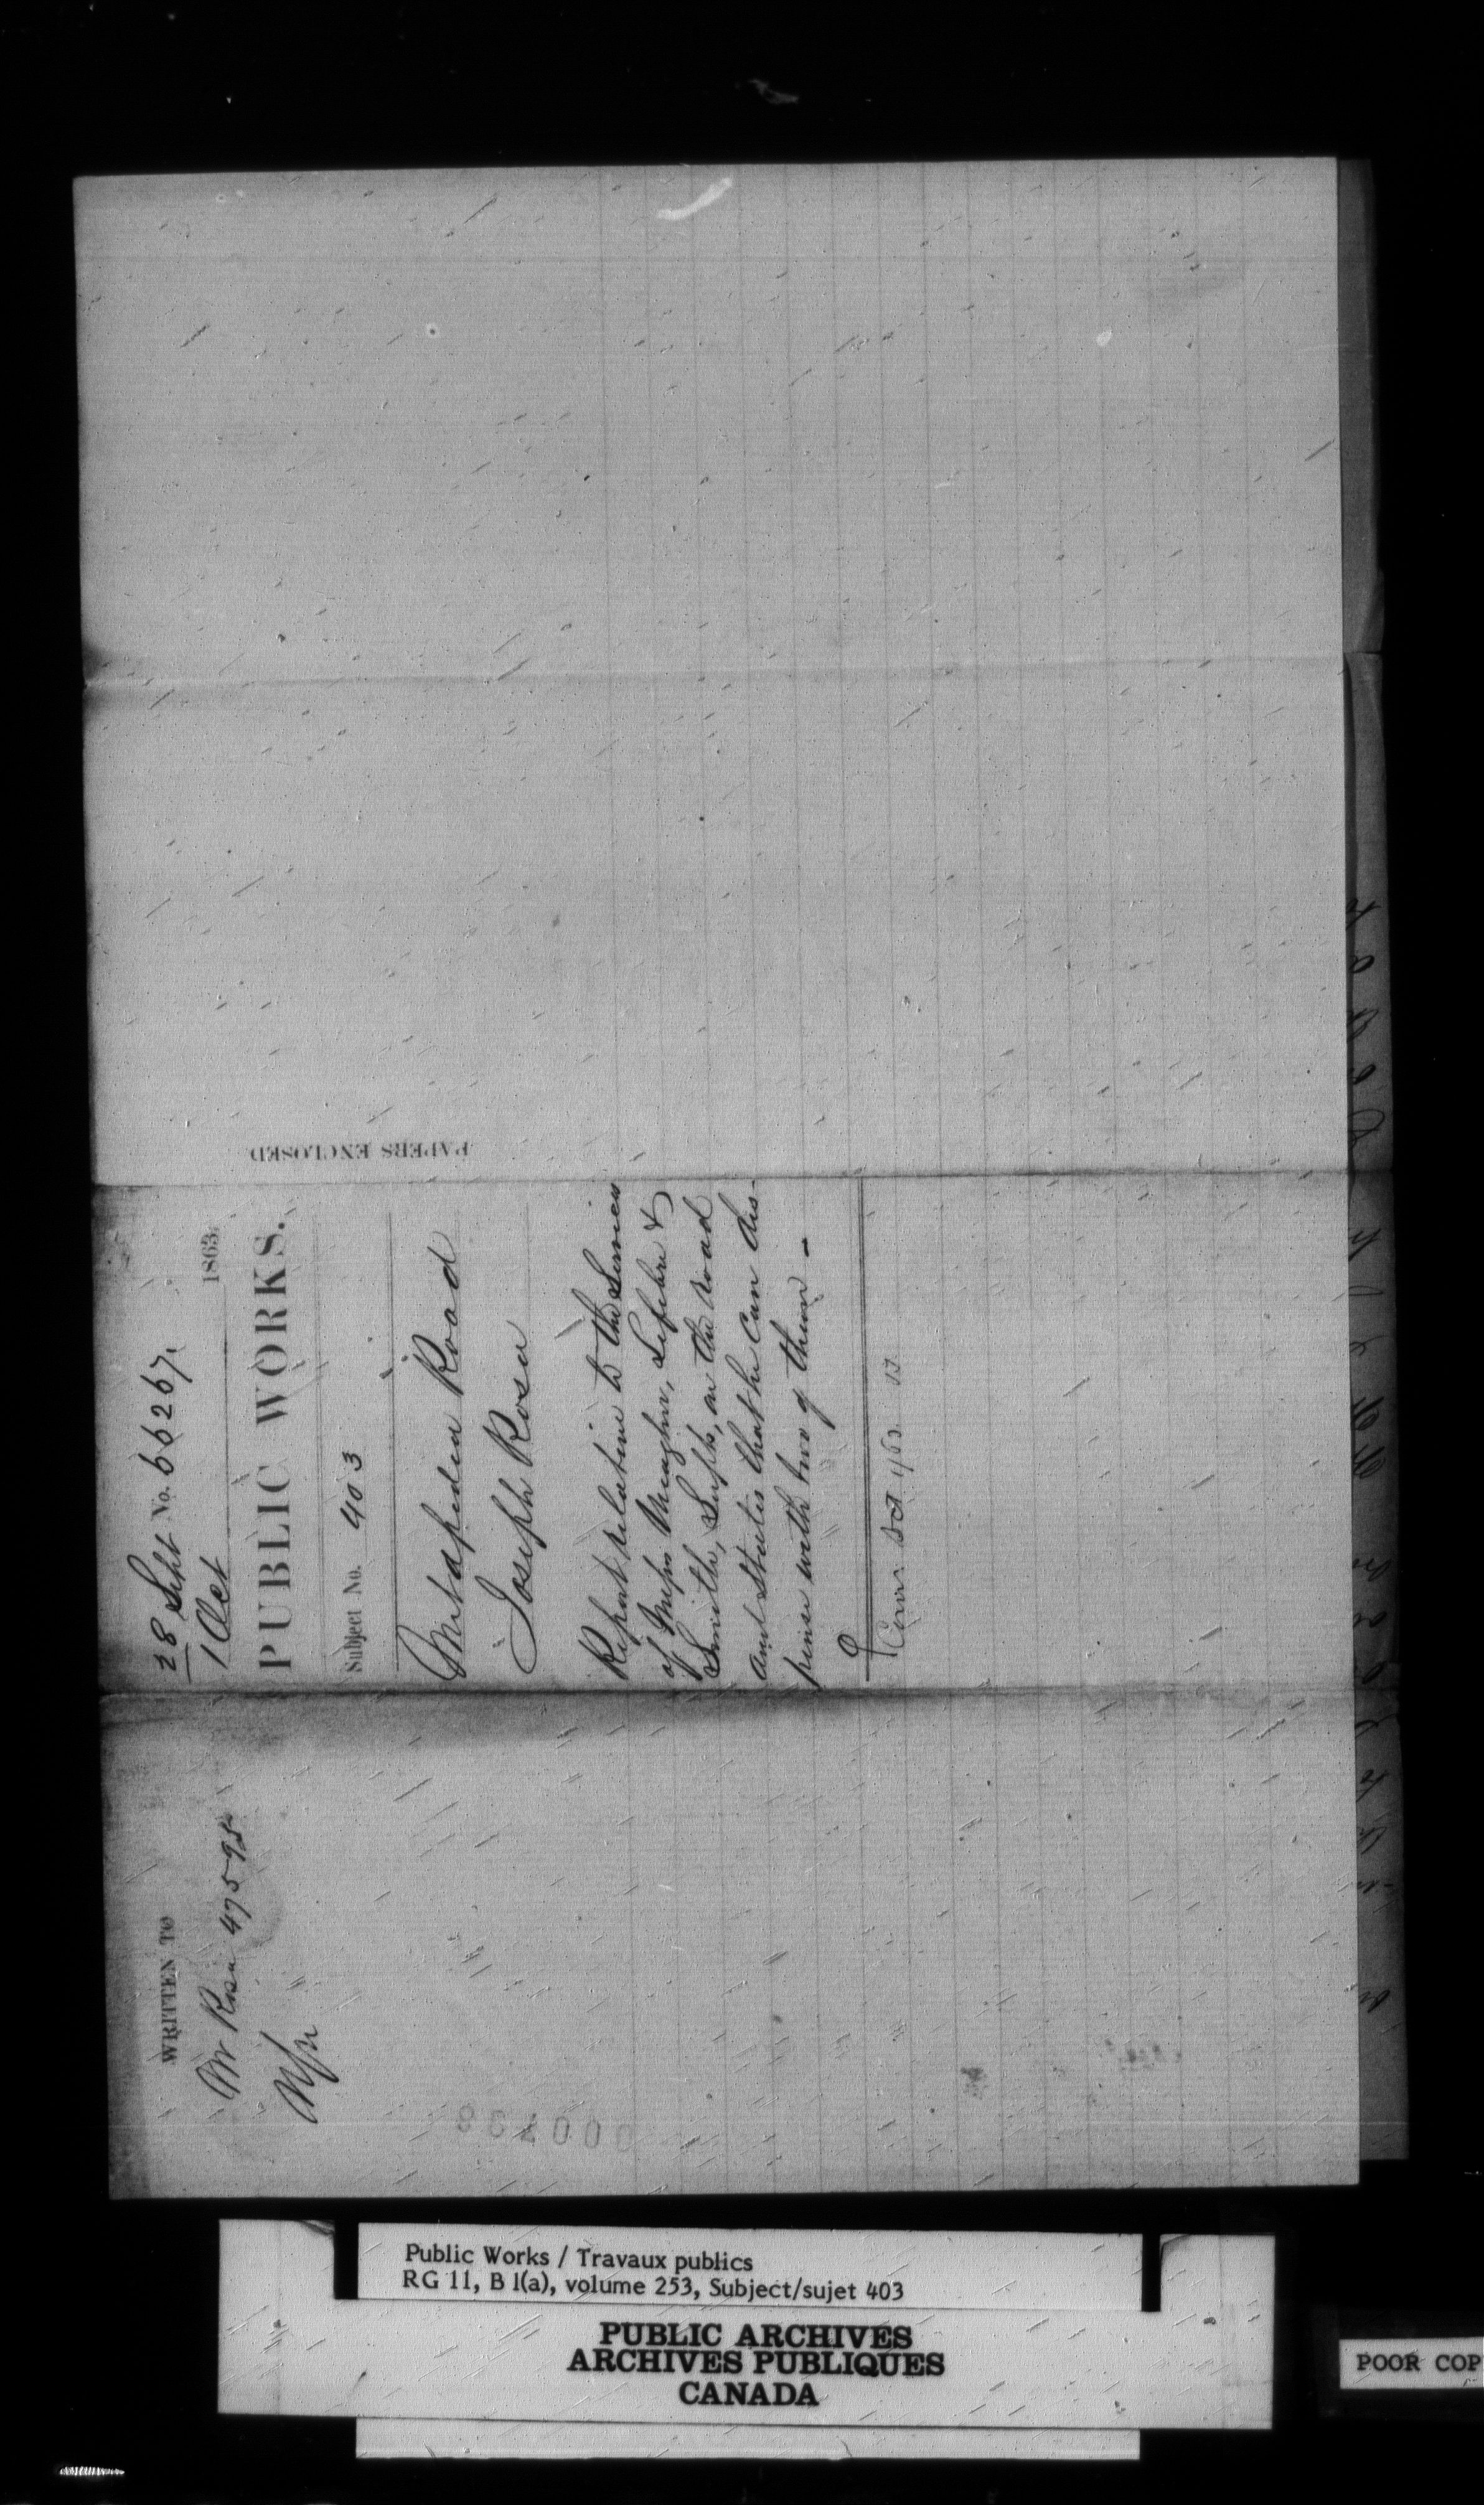 28 Sept No. 66267.
1 Oct 1863.
PUBLIC WORKS.
Subject No. 403
Metapedia Road
Joseph Rosa
Report relative to the Services
of Messrs Meagher, Lefebre &
Smith, Supts, on the road
and states that he can dis-
pense with two of them –
Corr. Oct 1/63
PAPERS ENCLOSED
WRITTEN TO
Mr Rosa 47595
000738
Public Works / Travaux publics
RG 11, B 1(a), volume 253, Subject/sujet 403
PUBLIC ARCHIVES
ARCHIVES PUBLIQUES
CANADA
POOR COP